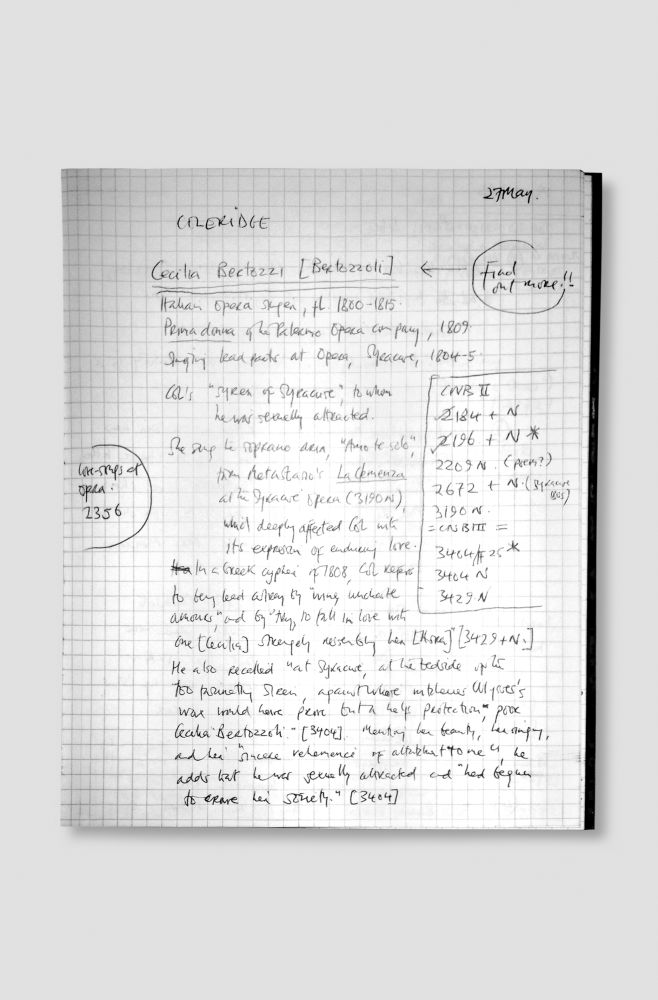 27 May.
COLERIDGE
Cecilia Bertozzi [Bertozzoli]
Find
out more!!
Italian Opera singer, fl. 1800-1815.
Prima donna of the Palermo Opera company, 1809.
Singing lead parts at Opera, Syracuse, 1804-5.
Col's "syren of Syracuse", to whom
he was sexually attracted.
She sung the soprano aria, "Amo te solo",
from Metastasio's La Clemenza
at the Syracuse opera (3190 N),
which deeply affected Col with
its expression of enduring love.
In a Greek cypher of 1808, Col refers
to being lead astray by "
amores," and by "trying to fall in love with
one [Cecilia] strangely resembling her [Asra]" [3429 + N.]
He also recalled "at Syracuse, at the bedside of the
too fascinating Siren, against whose Ulysses's
wax would have prove but a help protection, poor
Cecilia Bertozzoli." [3404]. Mentioning her beauty, her singing,
and her "sincere vehemence of attachment to me", he
adds that he was sexually attracted and "had begun
to crave her society." [3404]
CNB II
2184 + N
2196 + N *
2209 N. (poem?)
2672 + N. (Syracuse
1805)
3190 N.
= CNB III =
3404/f 25 *
3404 N
3429 N
love-songs at
opera:
2356